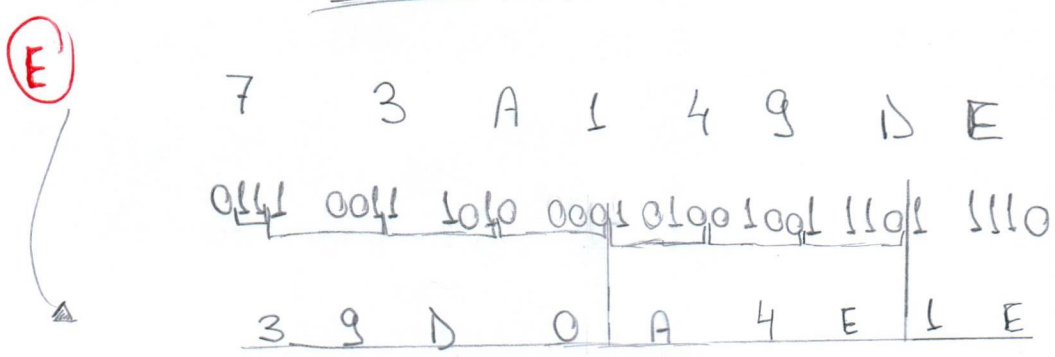 E
7 3 A 1 4 9 D E
0111 0011 1010 0001 0100 1001 1101 1110
3 9 D 0 A 4 E 1 E